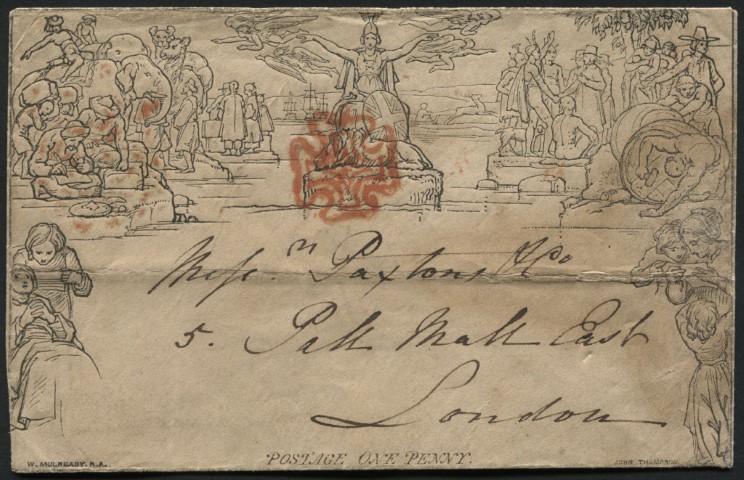 Messrs. Paxtons & Co
5. Pall Mall East
London
POSTAGE ONE PENNY.
W. MULREADY. R.A.
JOHN THOMPSON